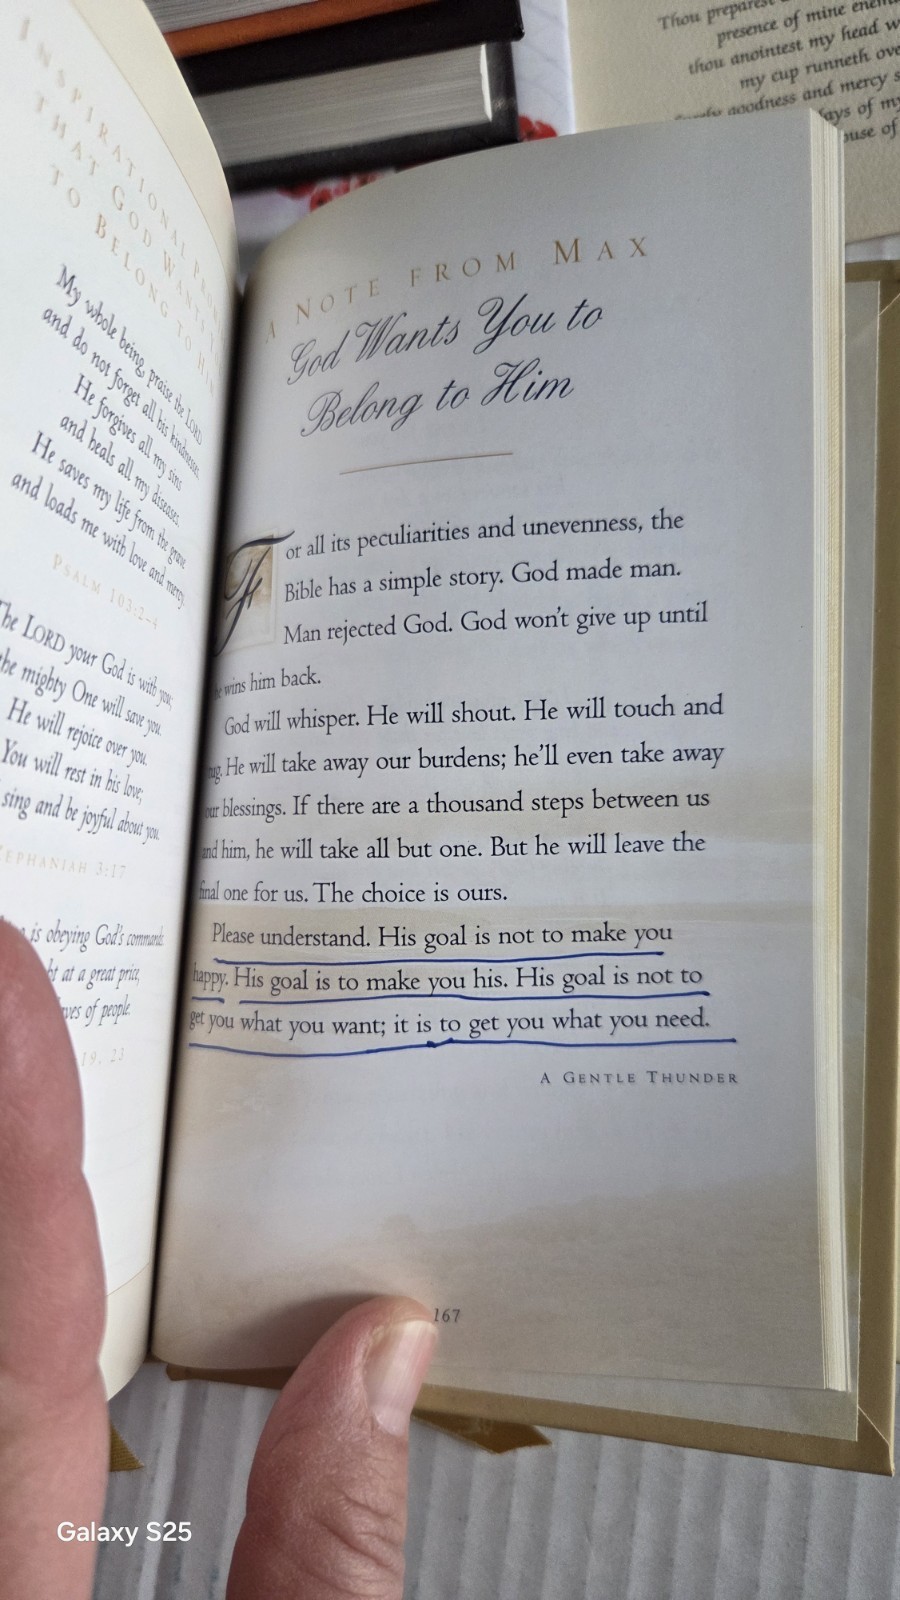 Thou preparest
presence of mine
thou anointest my head
my cup runneth
goodness and mercy
of my
of
INSPIRATIONAL
THAT GOD WANTS
TO BELONG TO HIM
My whole being, praise the LORD
and do not forget all his kindnesses.
He forgives all my sins
and heals all my diseases.
He saves my life from the grave
and loads me with love and mercy.
PSALM 103:2–4
The LORD your God is with you;
the mighty One will save you.
He will rejoice over you.
You will rest in his love;
sing and be joyful about you.
ZEPHANIAH 3:17
is obeying God's commands.
at a great price,
of people.
19, 23
A NOTE FROM MAX
God Wants You to
Belong to Him
For all its peculiarities and unevenness, the
Bible has a simple story. God made man.
Man rejected God. God won't give up until
he wins him back.
God will whisper. He will shout. He will touch and
He will take away our burdens; he'll even take away
our blessings. If there are a thousand steps between us
and him, he will take all but one. But he will leave the
final one for us. The choice is ours.
Please understand. His goal is not to make you
happy. His goal is to make you his. His goal is not to
get you what you want; it is to get you what you need.
A GENTLE THUNDER
167
Galaxy S25